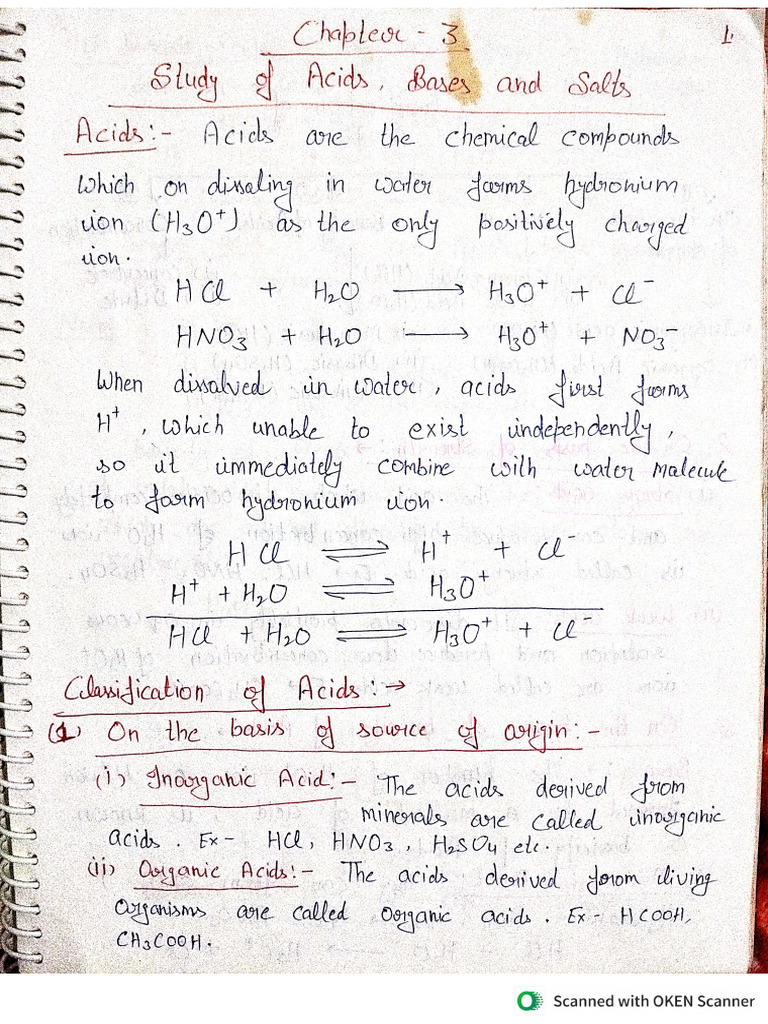 Chapter - 3
1.
Study of Acids, Bases and Salts
Acids:- Acids are the chemical compounds
which on dissoling in water forms hydronium
ion (H₃O⁺) as the only positively charged
ion.
HCl + H₂O ⟶ H₃O⁺ + Cl⁻
HNO₃ + H₂O ⟶ H₃O⁺ + NO₃⁻
When dissolved in water, acids first forms
H⁺, which unable to exist independently,
so it immediately combine with water molecule
to form hydronium ion
HCl ⇌ H⁺ + Cl⁻
H⁺ + H₂O ⇌ H₃O⁺
HCl + H₂O ⇌ H₃O⁺ + Cl⁻
Classification of Acids →
(1) On the basis of source of origin:-
(i) Inorganic Acid:- The acids derived from
minerals are called inorganic
acids. Ex- HCl, HNO₃, H₂SO₄ etc.
(ii) Organic Acids:- The acids derived from living
organisms are called organic acids. Ex- HCOOH,
CH₃COOH.
Scanned with OKEN Scanner